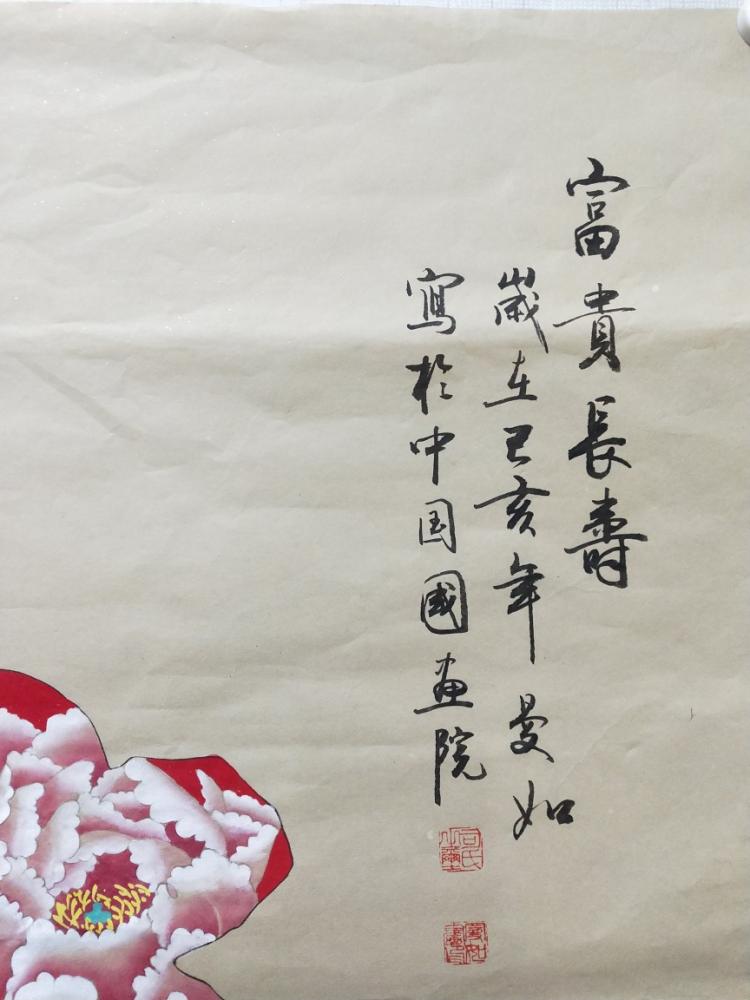 富貴長壽
歲在己亥年曼如
寫於中国國画院
曼如